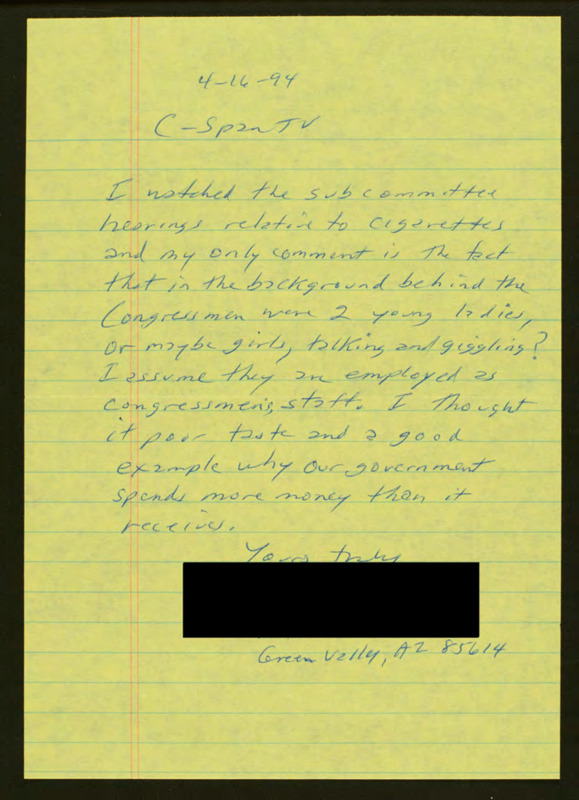 4-16-94
C-Span TV
I watched the subcommittee
hearings relative to cigarettes
and my only comment is the fact
that in the background behind the
Congressmen were 2 young ladies,
or maybe girls, talking and giggling?
I assume they are employed as
congressmens, staff. I thought
it poor taste and a good
example why our government
spends more money than it
receives.
Yours truly
Green Vally, AZ 85614